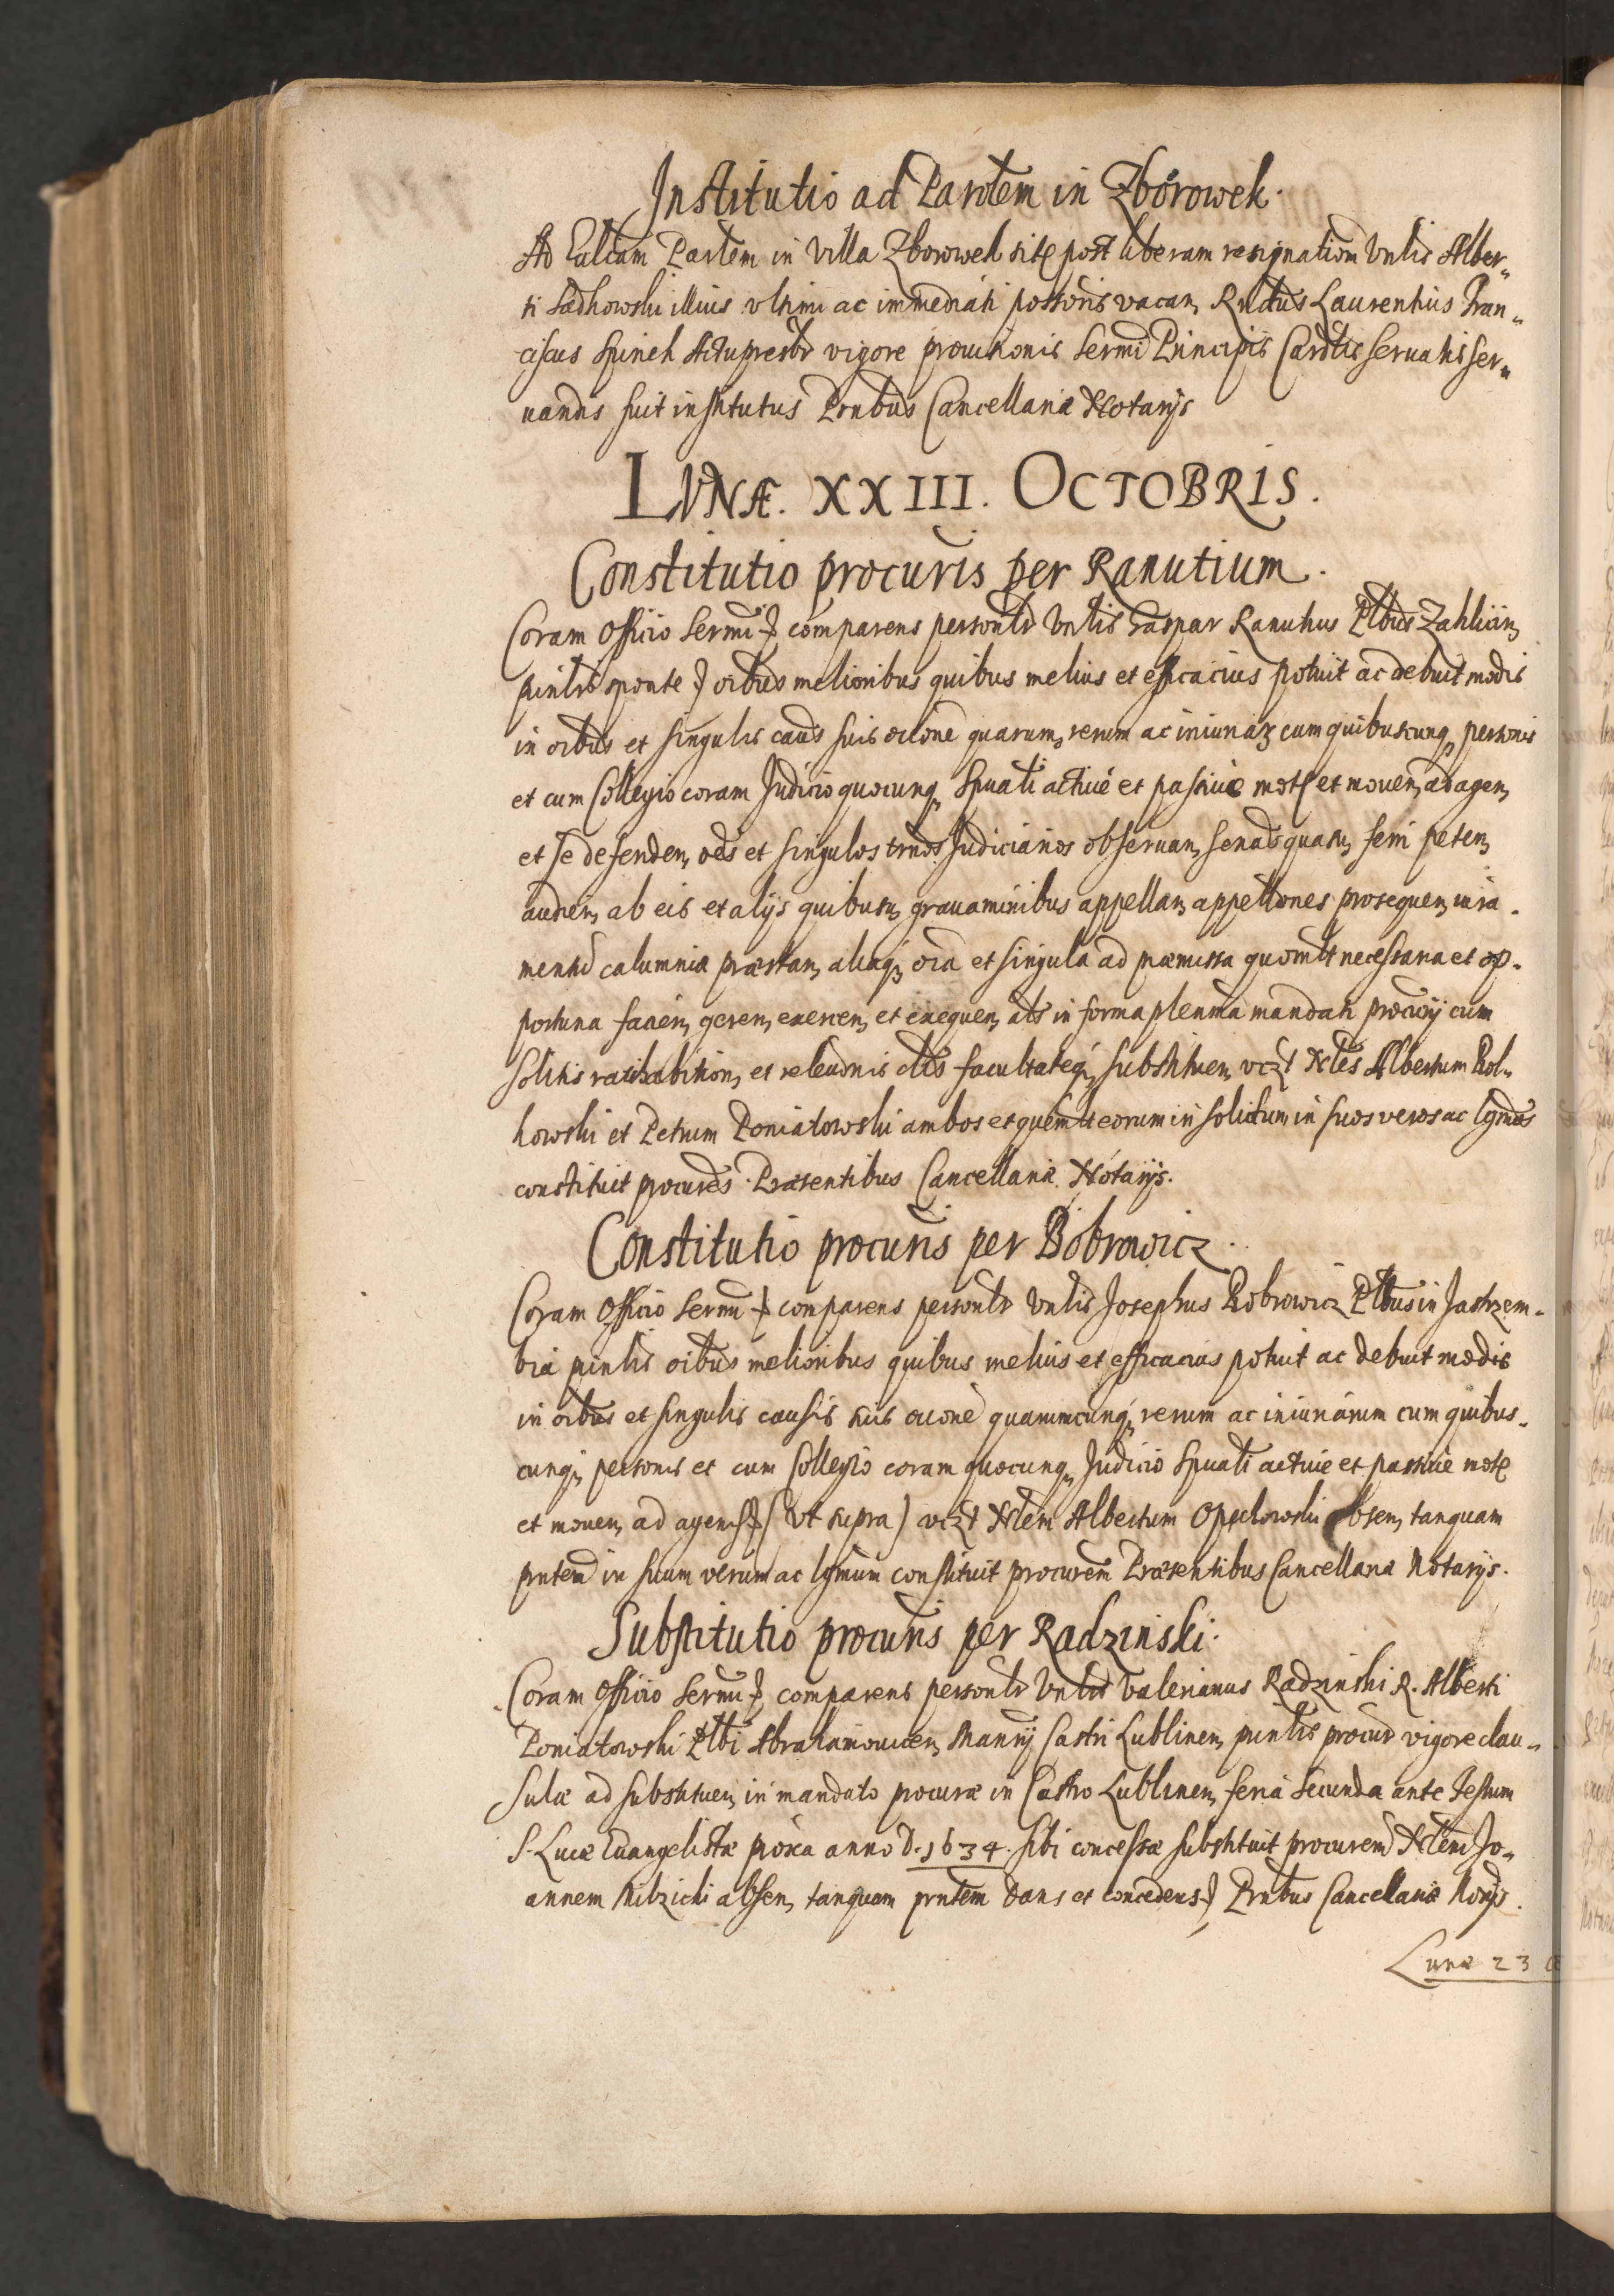 Institutio ad Partem in Zborowek.
Ad Ealtam Partem in Villa Zborowek sitę post liberam resignationē Vnlis Alber„
ti Sadkowski illius vltimi ac immediati possoris vacan, Rndus Laurentius Fran„
ciscus Spinek Actupresbr vigore prouisionis Sermi Principis Cardlis seruatis ser„
uandis fuit institutus Pntibus Cancellariæ Notarijs
LVNÆ. XXIII. OCTOBRIS.
Constitutio procuris per Ranutium.
Coram Officio Sermi &c comparens personlr Vnlis Gaspar Ranutius Plbus Zaklicin,
pinlis sponte &c oibus melioribus quibus melius et efficacius potuit ac debuit modis
in oibus et singulis caus suis oione quarum, rerum ac iniuriaȝ cum quibuscunq, personis
et cum Collegio coram Judicio quocunq, Spuali actiue et passiue motę et mouen, ad agen,
et se defenden, oes et singulos trnos Judiciarios obseruan, senas quasu, ferri peten,
audien, ab eis et alijs quibusu, grauaminibus appellan, appellones prosequen, iura.
mentū calumniæ præstan, aliaq, oia et singula ad præmissa quomlt necessaria et op.
portuna facien, geren, exercen, et exequen, als in forma plenma mandati procurij cum
solitis ratihabition, et releuonis clis facultateq, substituen, vizt Nles Albertum Rol„
kowski et Petrum Poniatowski ambos et quemlt eorum in solidum in suos veros ac lgmos
constituit procures. Præsentibus Cancellariæ Notarijs.
Constitutio procuris per Bobrowicz.
Coram Officio Sermi &c comparens personlr Vnlis Josephus Bobrowicz Plbus in Jastrzem.
bia pinlis oibus melioribus quibus melius et efficacius potuit ac debuit modis
in oibus et singulis causis suis oione quarumcunq, rerum ac iniuriarum cum quibus.
cunq, personis et cum Collegio coram quocunq, Judicio Spuali actiue et passiue motę
et mouen, ad agend &c (vt supra) vizt Nlem Albertum Opschowski absen, tanquam
pntem in suum verum ac lgmum constituit procurem Præsentibus Cancellariæ Notarijs.
Substitutio procuris per Radzinski.
Coram Officio Sermi &c, comparens personlr Vnlis Valerianus Radzinski R. Alberti
Poniatowski Plbi Abrahamouicen, Mansrij Castri Lublinen, pinlis procur vigore clau„
sulæ ad substituen, in mandato procuræ in Castro Lublinen, feria secunda ante Festum
S. Lucæ Euangelistæ proxa anno D. 1634. sibi concessæ substituit procurem Nlem Jo„
annem absen, tanquam pntem dans et concedens &c Pntbus Cancellariæ Norijs.
Lunæ 23